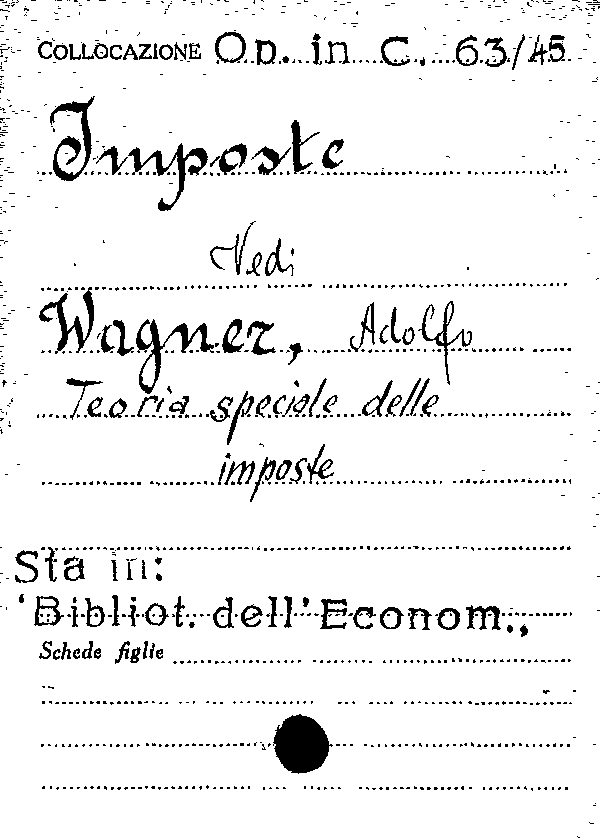 COLLOCAZIONE Op. in C. 63/45
Imposte
Vedi
Wagner, Adolfo
Teoria speciale delle
imposte
Sta in:
'Bibliot. dell'Econom.,
Schede figlie